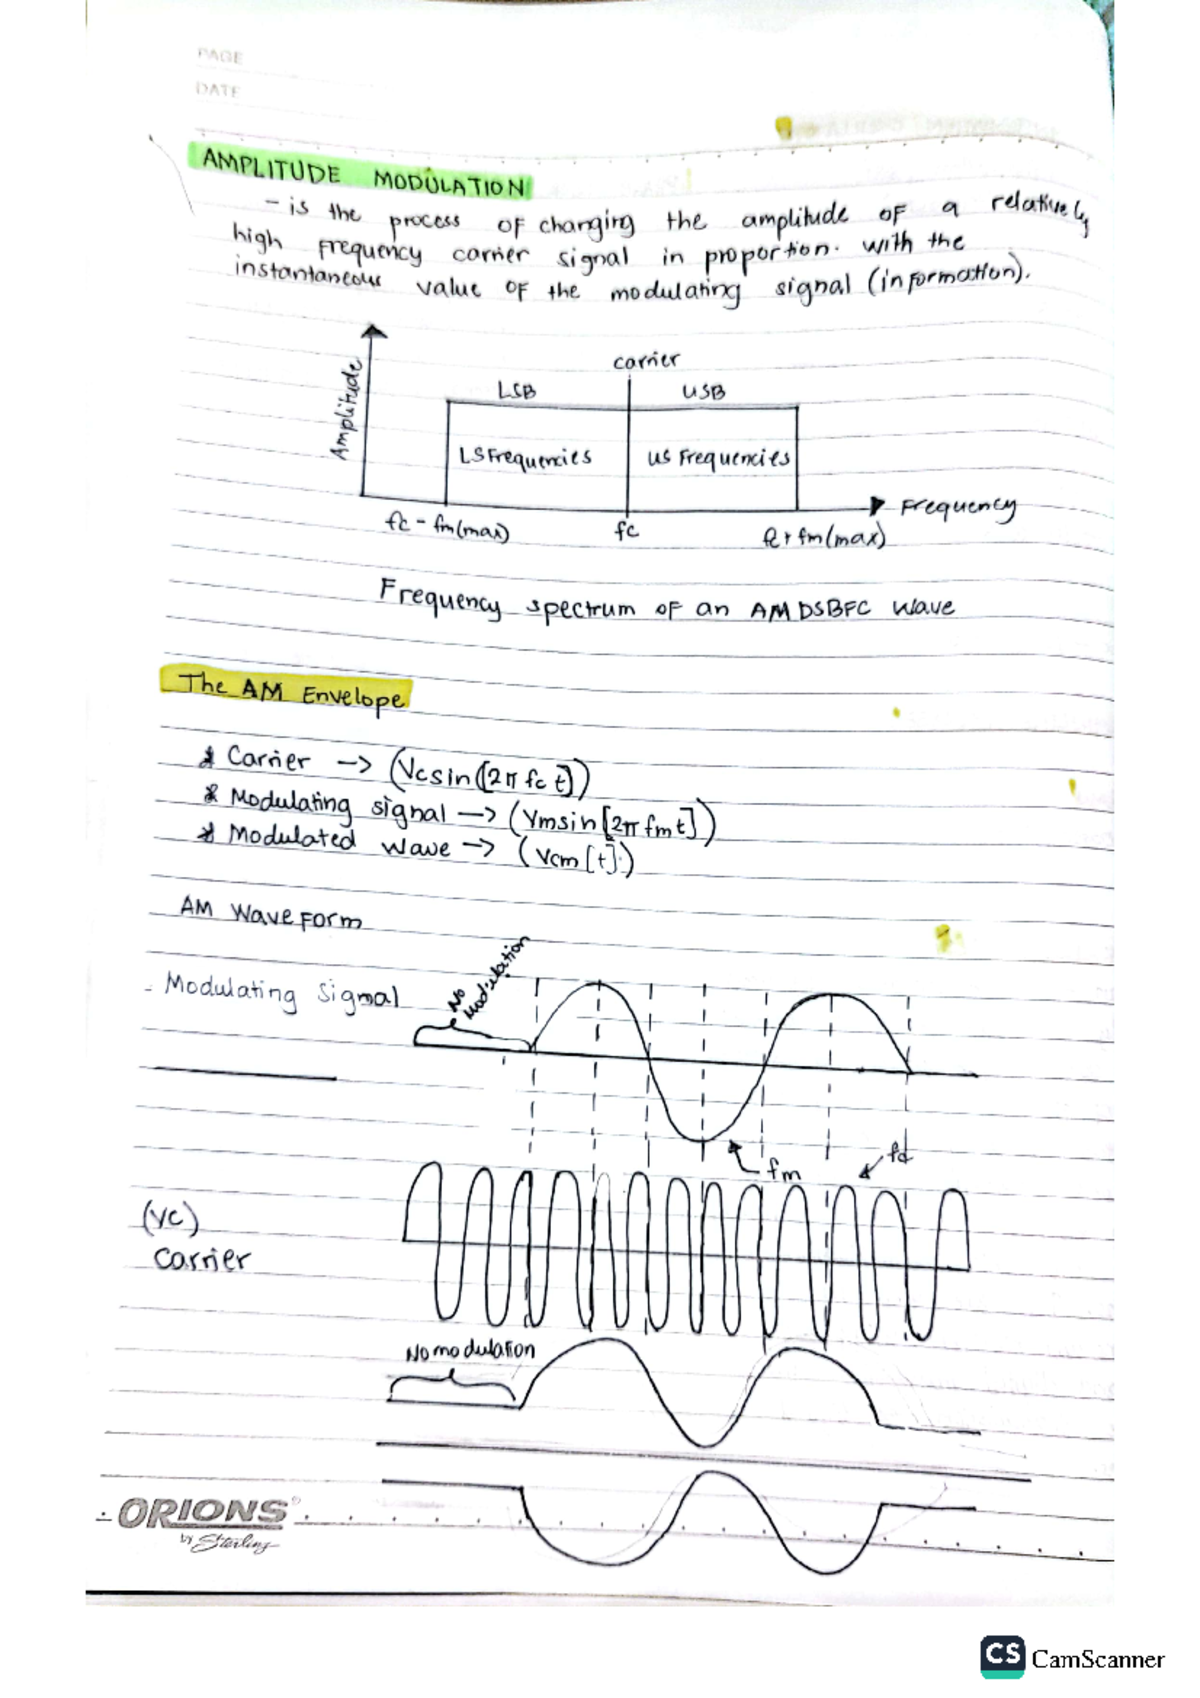 PAGE
DATE
AMPLITUDE MODULATION
- is the process of changing the amplitude of a relatively
high frequency carrier signal in proportion. with the
instantaneous value of the modulating signal (information).
carrier
Amplitude
LSB USB
LS Frequencies US Frequencies
Frequency
fc - fm(max) fc fc + fm(max)
Frequency spectrum of an AM DSBFC wave
The AM Envelope
* Carrier -> (Vcsin[2π fc t])
* Modulating signal -> (Vmsin[2π fmt])
* Modulated wave -> (Vcm[t])
AM Waveform
No modulation
- Modulating Signal
fm fc
(Vc)
Carrier
No modulation
ORIONS
by Sterling
CS CamScanner